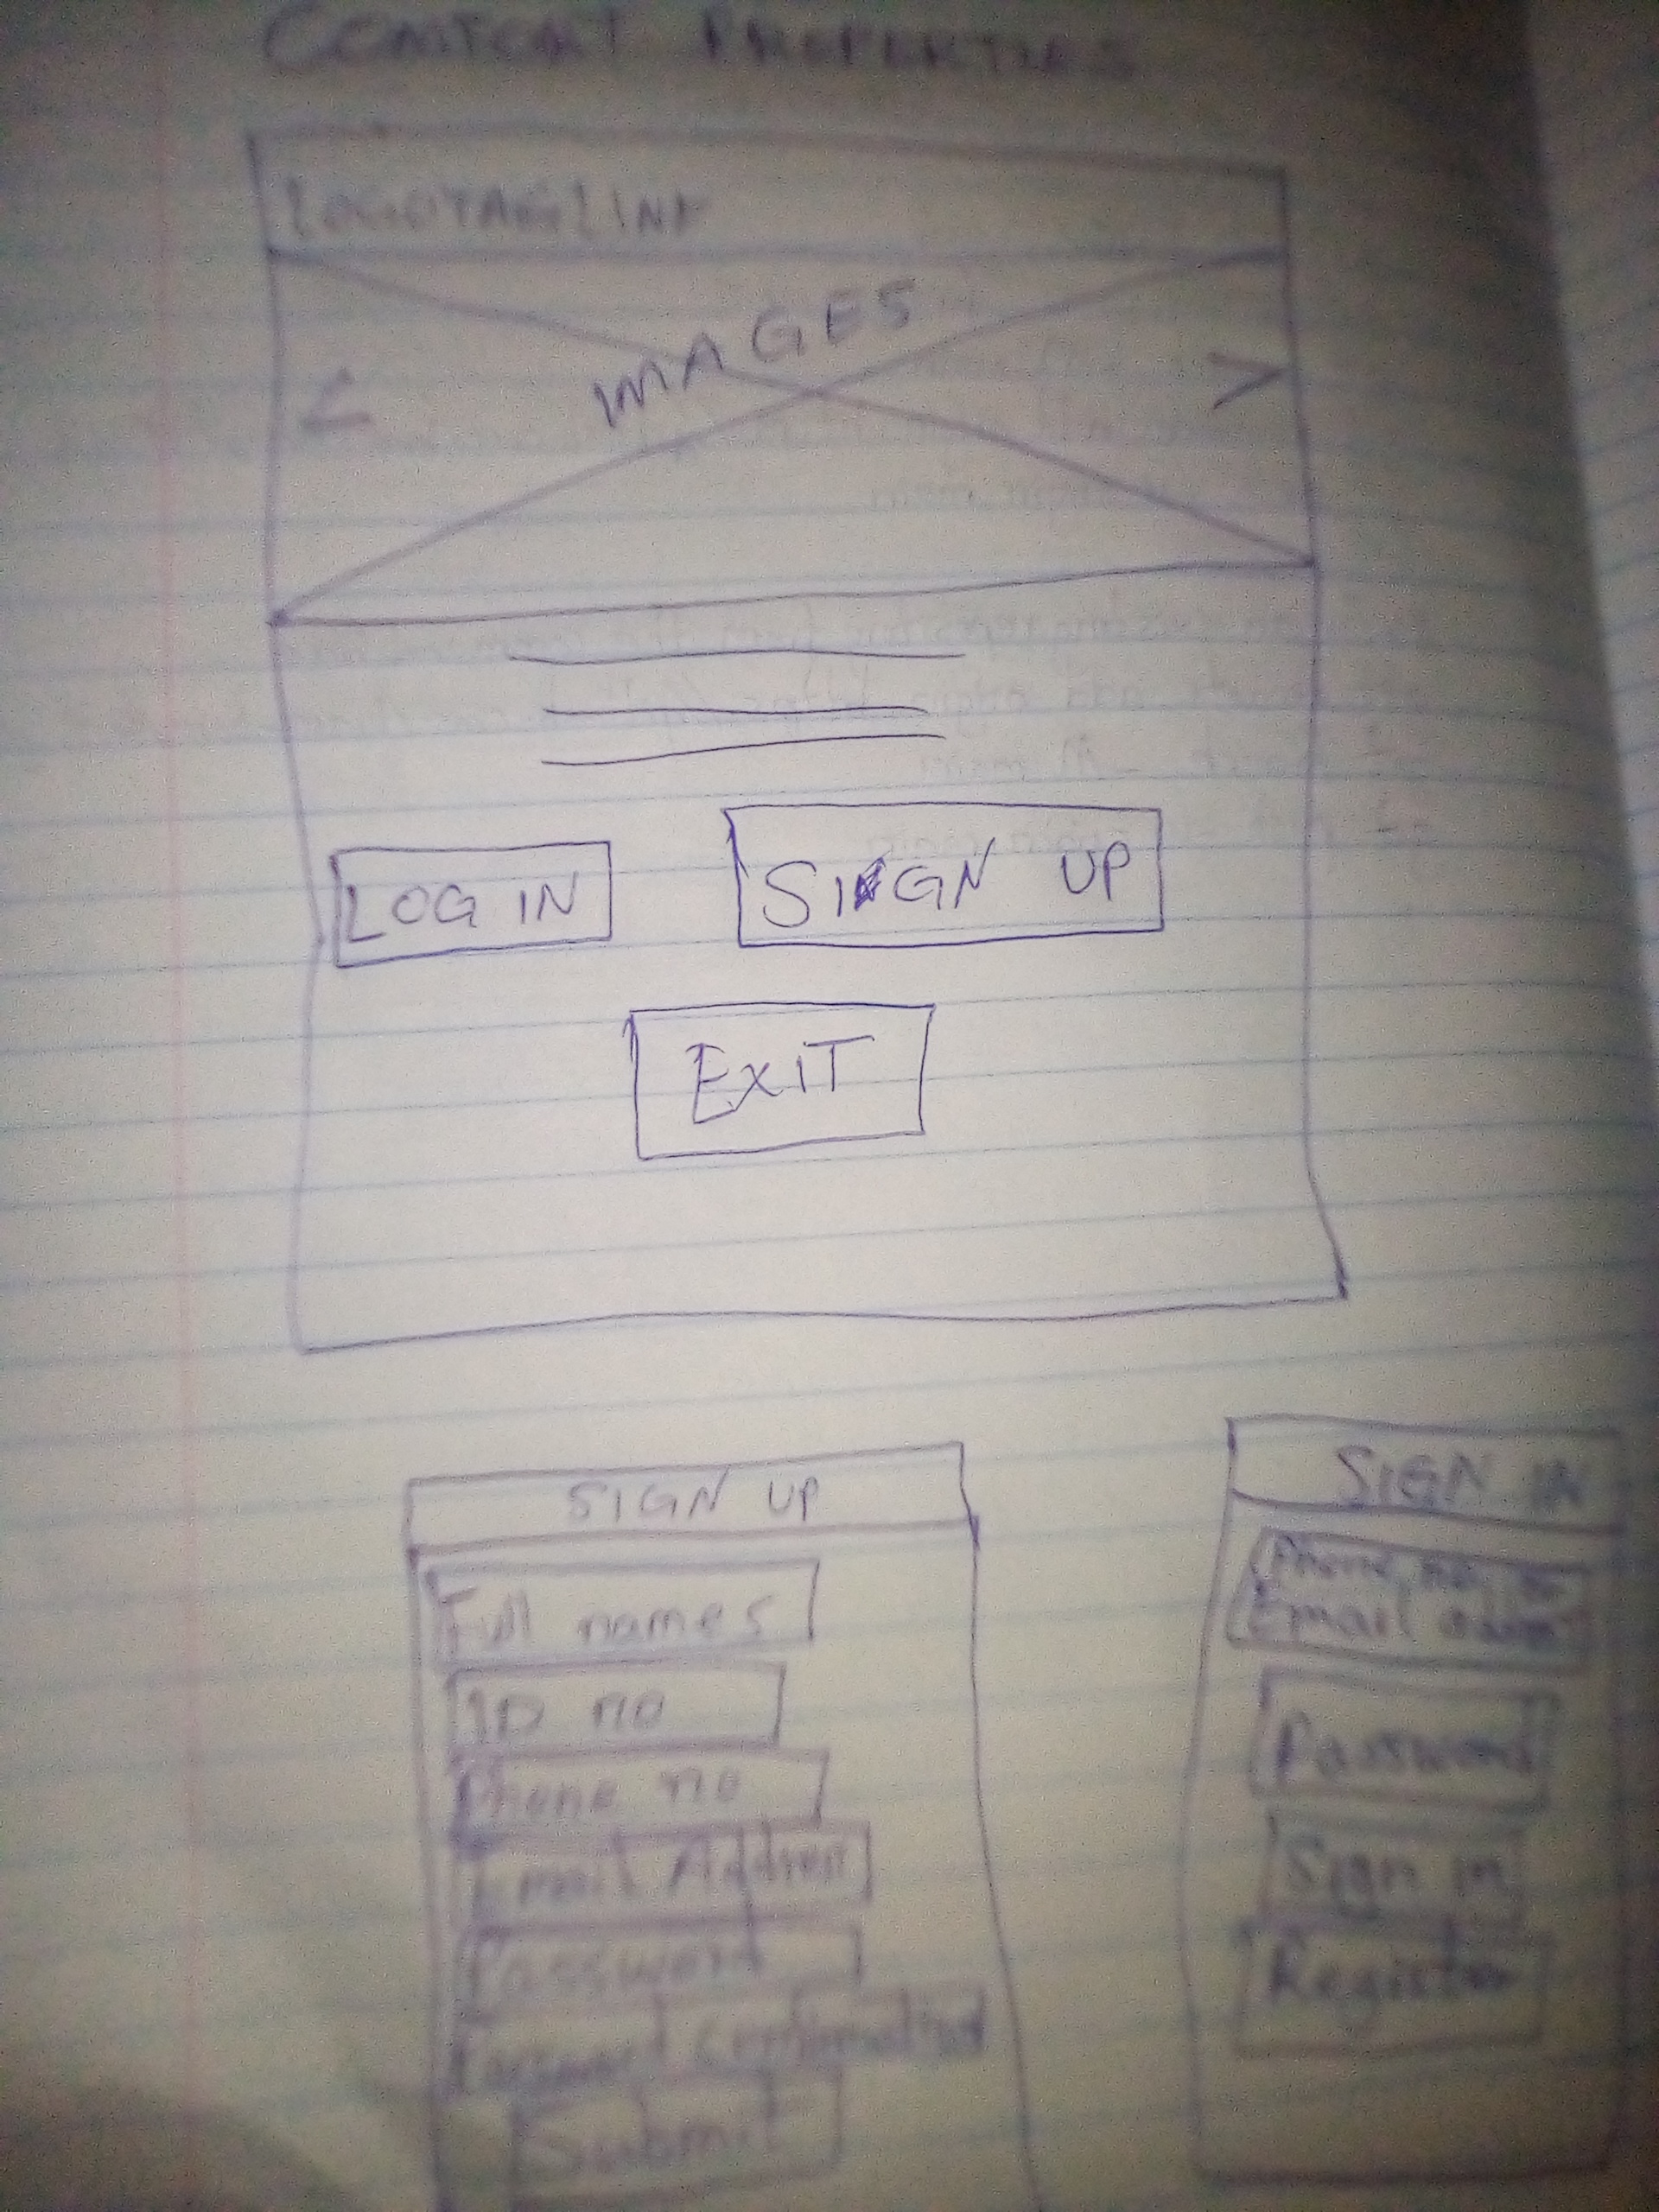 COMFORT PROPERTIES
LOGO TAGLINE
IMAGES
<
>
LOG IN
SIGN UP
EXIT
SIGN UP
Full names
ID no
Phone no
Email Address
Password
Password Confirmation
Submit
SIGN IN
Phone no
Email
Password
Sign in
Register